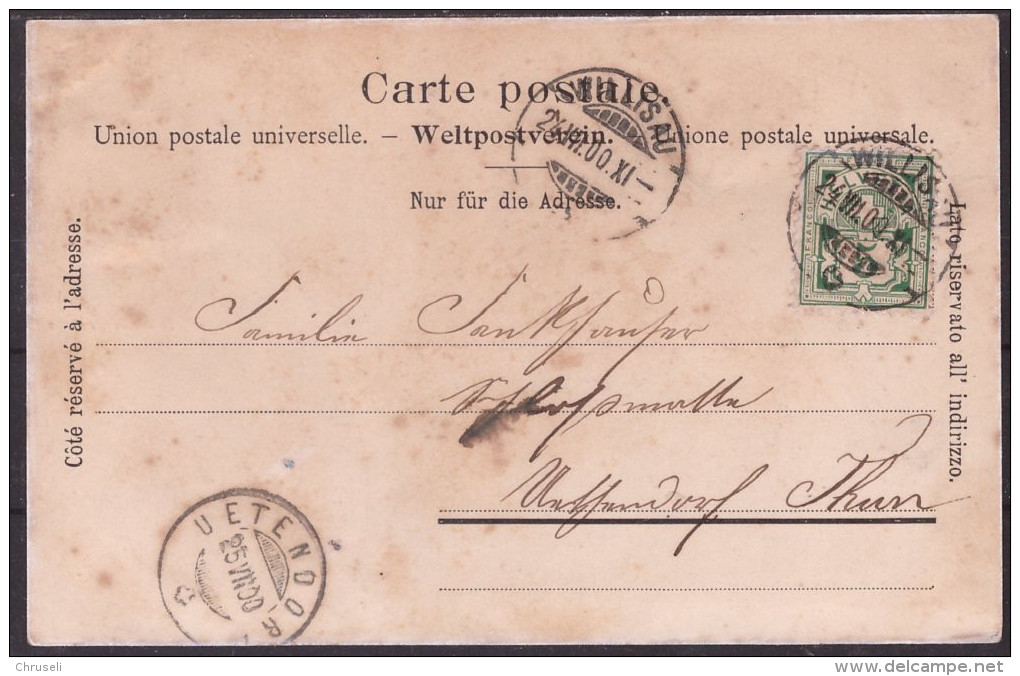 Carte postale.
Union postale universelle. – Weltpostverein. – Unione postale universale.
Nur für die Adresse.
WILLISAU
24.VII.00.XI–
WILLISAU
VII.00.XI
FRANCO
Côté réservé à l'adresse.
Lato riservato all' indirizzo.
Familie Fankhauser
Schlossmatte
Uettendorf Thun
UETENDORF
25.VII.00
Chruseli
www.delcampe.net